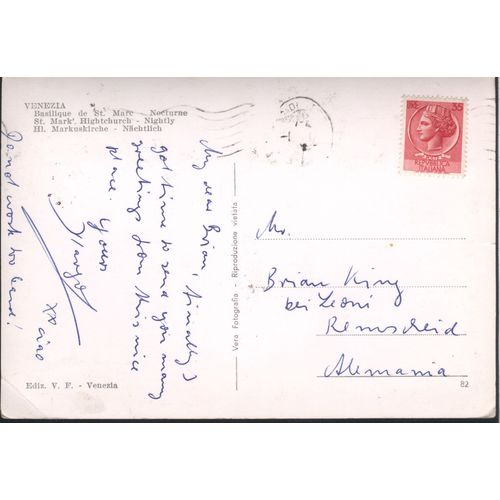 VENEZIA
Basilique de St. Marc - Nocturne
St. Mark' Hightchurch - Nightly
Hl. Markuskirche - Nächtlich
My dear Brian, finally I
got time to send you many
greetings from this nice
place. Yours
xx ciao
Do not work too hard!
Ediz. V. F. - Venezia
Vera Fotografia - Riproduzione vietata
LIRE 35
REPUBBLICA
ITALIANA
Mr.
Brian King
bei Leoni
Remscheid
Alemania
82